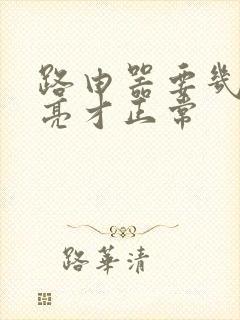 路由器要几
亮才正常
路华清